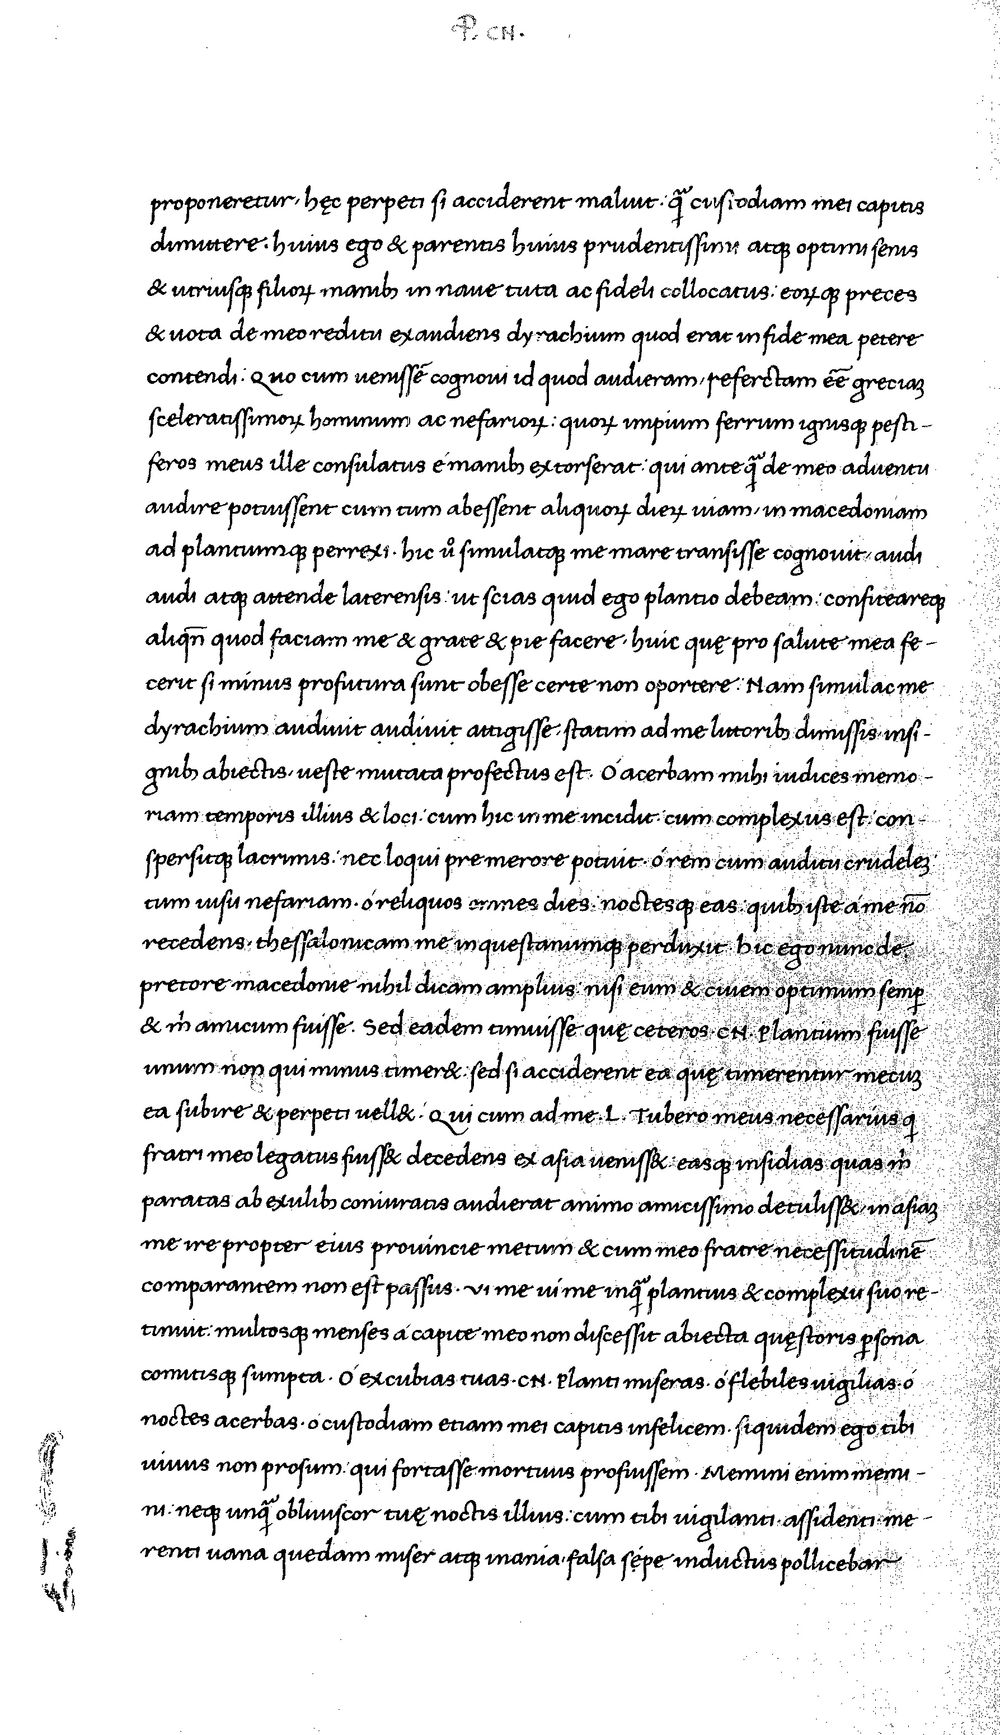 P. CN.
proponeretur, hęc perpeti si acciderent maluit: q̃ᷓ custodiam mei capitis
dimittere. huius ego & parentis huius prudentissimi atqꝫ optimi senis
& utriusqꝫ filioꝝ manibꝫ in naue tuta ac fideli collocatus: eoꝝqꝫ preces
& uota de meo reditu exaudiens dyrachium quod erat in fide mea petere
contendi: Quo cum uenissē cognoui id quod audieram, refertctam eē̄ greciaꝫ
sceleratissimoꝝ hominum ac nefarioꝝ: quoꝝ impium ferrum ignisqꝫ pesti-
feros meus ille consulatus é manibꝫ extorserat: qui anteq̃ᷓ de meo aduentu
audire potuissent cum tum abessent aliquoꝝ dieꝝ uiam, in macedoniam
ad planciumqꝫ perrexi. hic ů simulatqꝫ me mare transisse cognouit, audi
audi atqꝫ attende laterensis: ut scias quid ego plantio debeam: confitearęqꝫ
aliqn̄ quod faciam me & grate & pie facere, huic quę pro salute mea fe-
cerit si minus profutura sunt obesse certe non oportere: Nam simul ac me
dyrachium audiuit auḍiuiṭ attigisse, statim ad me lictoribꝫ dimissis, insi-
gnibꝫ abiectis, ueste mutata profectus est. O acerbam mihi iudices memo-
riam temporis illius & loci: cum hic in me incidit: cum complexus est: con-
spersitqꝫ lacrimis: nec loqui pre merore potuit. ó rem cum auditu crudeleꝫ
tum uisu nefariam. ó reliquos omnes dies: noctesqꝫ eas: quibꝫ iste á me nō
recedens, thessalonicam me in questanumqꝫ perduxit. hic ego nunc de
pretore macedonie nihil dicam amplius: nisi eum & ciuem optimum semꝑ
& m̊ amicum fuisse. Sed eadem timuisse quę ceteros. CN. Plantium fuisse
unum non qui minus timer&: sed si acciderent ea quę timerentur mecuꝫ
ea subire & perpeti uell&: Qui cum ad me. L. Tubero meus necessarius q̇
fratri meo legatus fuiss& decedens ex asia ueniss&: easqꝫ insidias quas m̊
paratas ab exulibꝫ coniuratis audierat animo amicissimo detuliss&, in asiaꝫ
me ire propter eius prouincie metum & cum meo fratre necessitudinē
comparantem non est passus. Vi me ui me inq̃ᷓ plantius & complexu suo re-
tinuit: multosqꝫ menses á capite meo non discessit abiecta quęstoris ꝑsona
comitisqꝫ sumpta. O excubias tuas. CN. Planti miseras. ó flebiles uigilias. ó
noctes acerbas. o custodiam etiam mei capitis infelicem. siquidem ego tibi
uiuus non prosum: qui fortasse mortuus profuissem. Memini enim memi-
ni: neqꝫ unq̃ᷓ obliuiscor tuę noctis illius: cum tibi uigilanti. assidenti. me-
renti uana quedam miser atqꝫ inania, falsa sępe inductus pollicebar